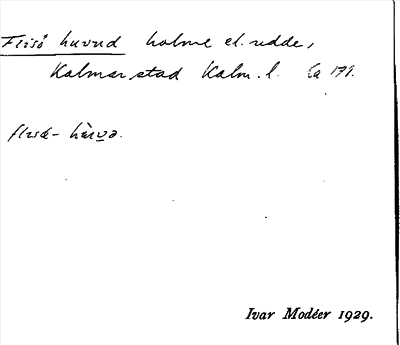 Flisö huvud holme el. udde,
Kalmar stad Kalm. l. Ca 179.
flisö-
Ivar Modéer 1929.